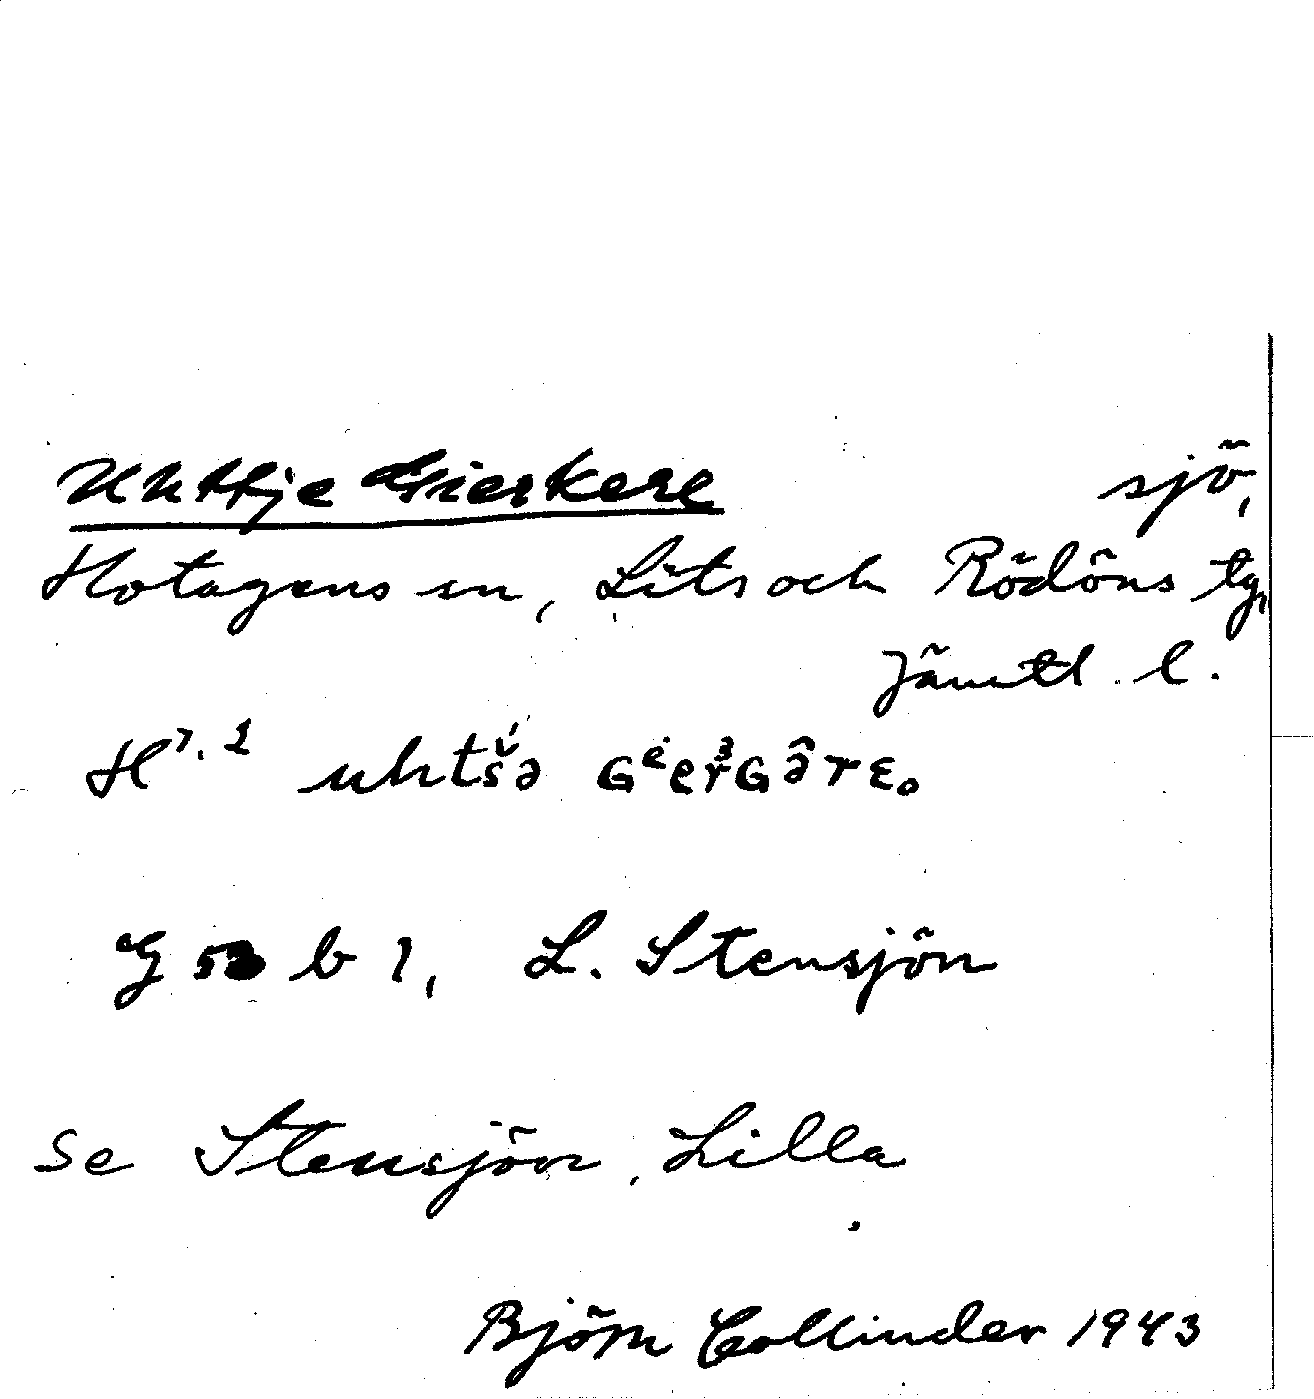 Uhttje Gierkere sjö,
Hotagens sn, Lits och Rödöns tg,
Jämtl. l.
H 1. 2 uhtšə
G b 1, L. Stensjön
Se Stensjön, Lilla
Björn Collinder 1943